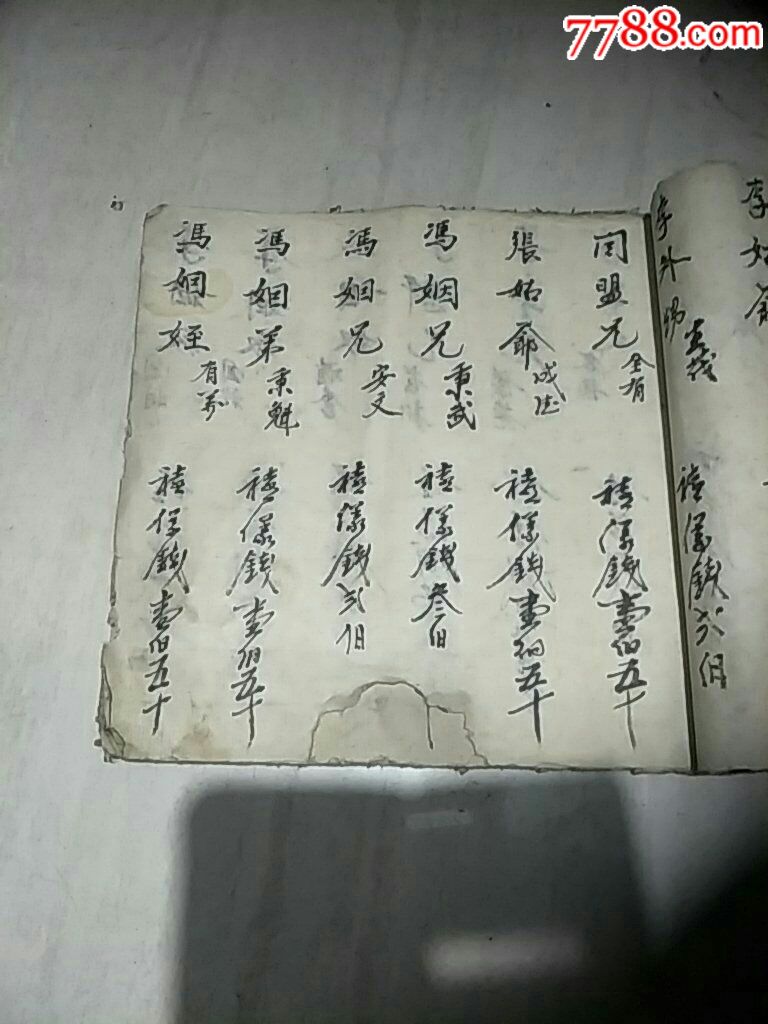 7788.com
李姑爺
李外甥
禧儀錢弍佰
闫盟兄 全有
禧儀錢壹佰五十
張姑爺 成德
禧儀錢壹佰五十
馮姻兄 秉武
禧儀錢叁佰
馮姻兄 安文
禧儀錢弍佰
馮姻弟 秉魁
禧儀錢壹佰五十
馮姻姪 有
禧儀錢壹佰五十